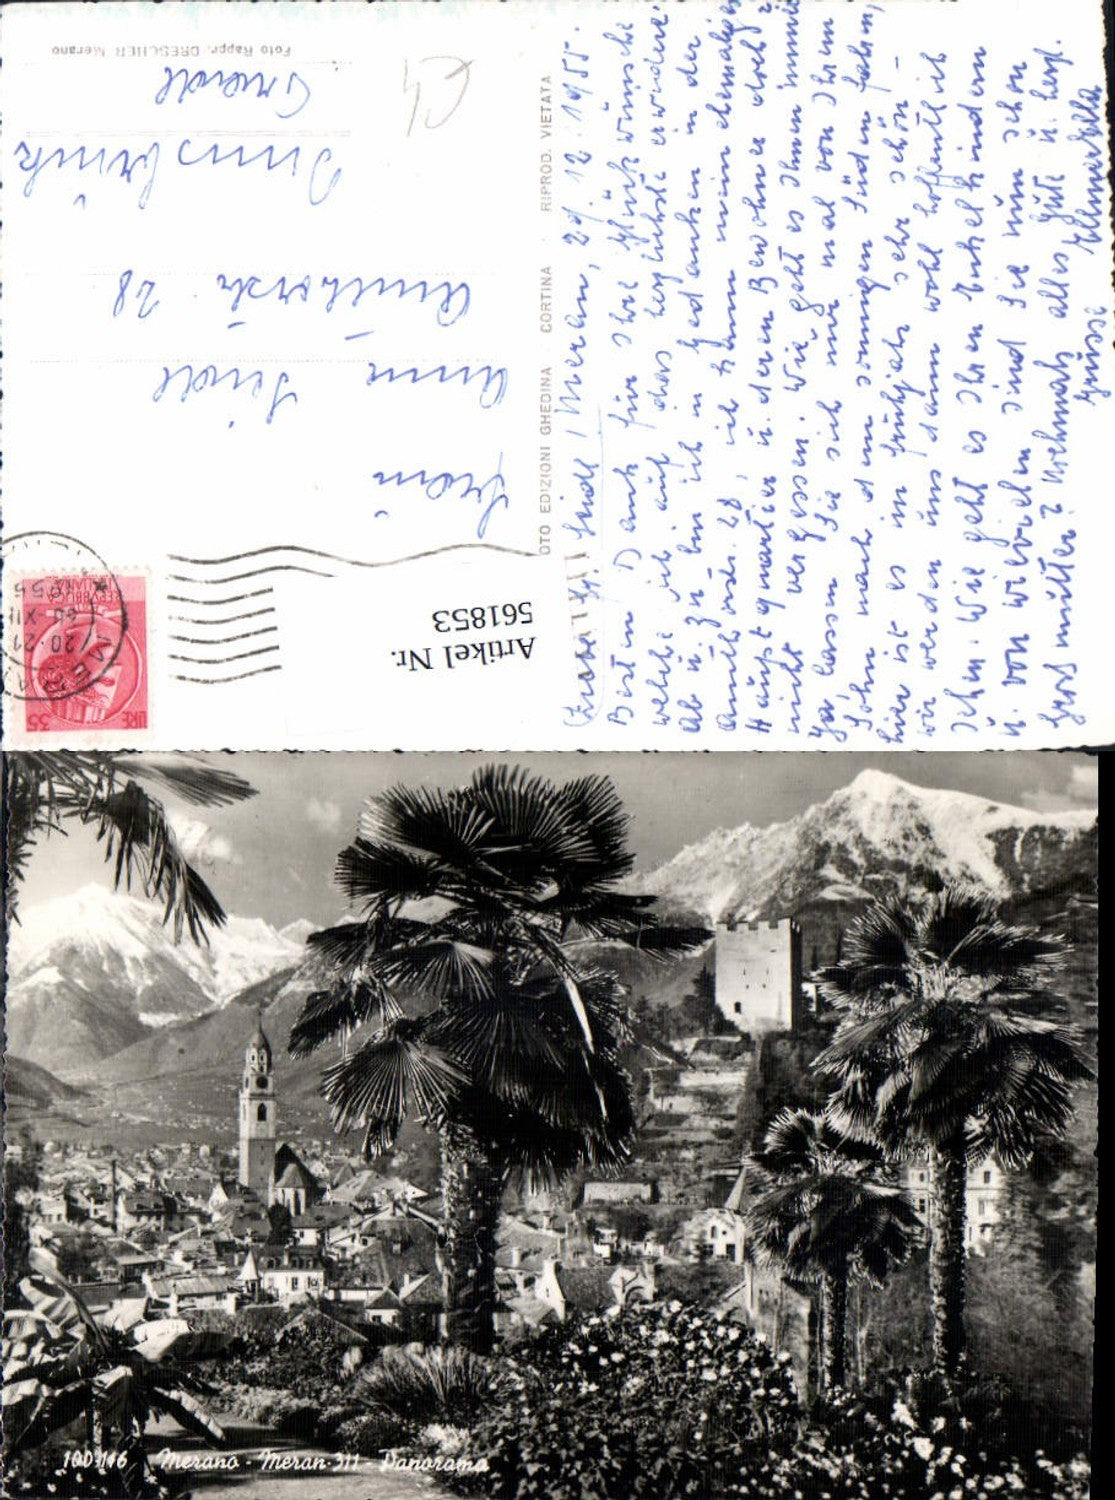 Meran, 29.12.1955.
Liebe Fr. Seidl!
Besten Dank für Ihre Glückwünsche
welche ich auf das herzlichste erwidere.
Ab u. zu bin ich in Gedanken in der
28, ich kann mein ehemaliges
Hauptquartier u. deren Bewohner doch
nicht vergessen. Wie geht es Ihnen immer
Ja, lassen Sie sich nur mal von Ihrem
Sohn nach dem sonnigen Süden fahren,
hier ist es im Frühjahr sehr schön –
wir werden uns dann wohl hoffentlich
sehen. Wie geht es Ihren Enkelkindern
u. von wievielen sind Sie nun schon
Großmutter? Nochmals alles Gute u. herzl.
Grüsse
FOTO EDIZIONI GHEDINA - CORTINA - RIPROD. VIETATA
Frau
Anna Seidl
28
Innsbruck
Foto Rappr. DRESCHER Merano
REPVBBLICA ITALIANA
LIRE 35
20-21
Artikel Nr.
561853
100.116 Merano - Meran-311 - Panorama